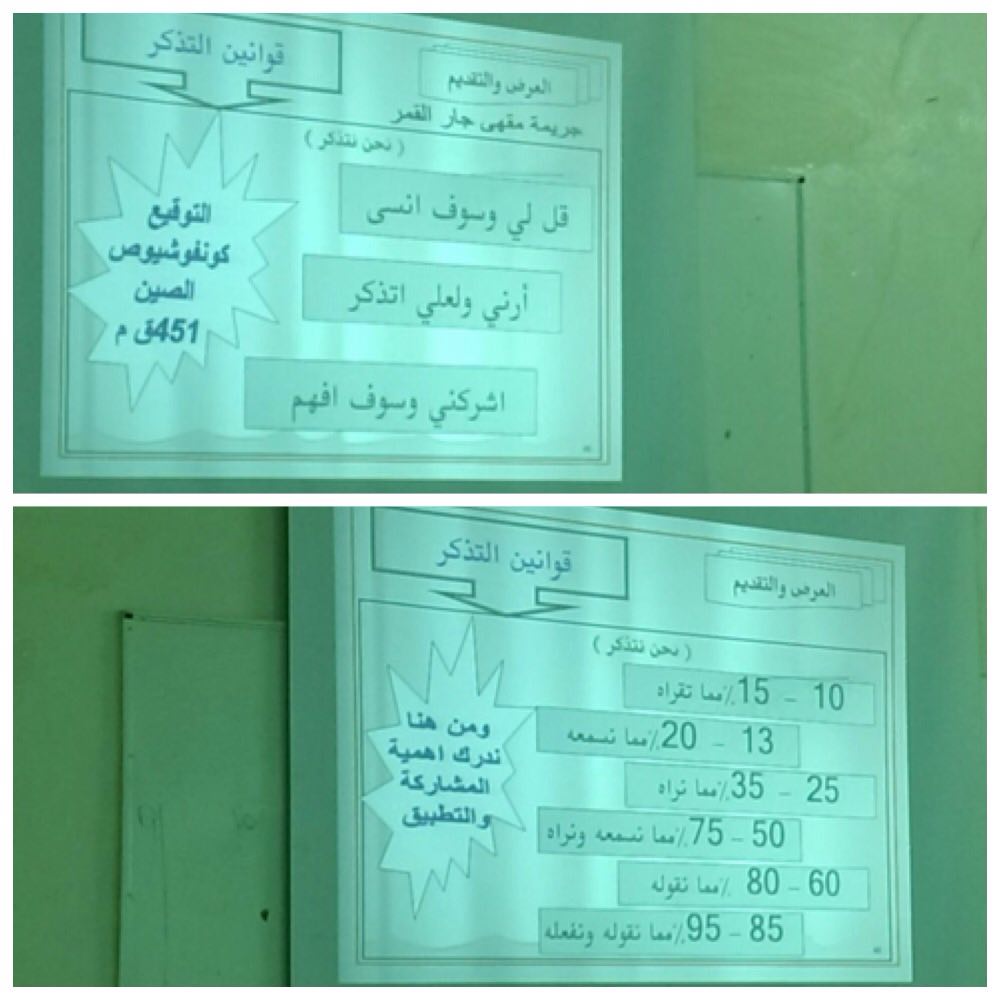 قوانين التذكر
العرض والتقديم
جريمة مقهى جار القمر
( نحن نتذكر )
قل لي وسوف انسى
أرني ولعلي اتذكر
اشركني وسوف افهم
التوقيع
كونفوشيوص
الصين
451ق م
قوانين التذكر
العرض والتقديم
( نحن نتذكر )
10 – 15٪مما تقراه
13 – 20٪مما نسمعه
25 – 35٪مما نراه
50 – 75٪مما نسمعه ونراه
60 – 80 ٪مما نقوله
85 – 95٪مما نقوله ونفعله
ومن هنا
ندرك اهمية
المشاركة
والتطبيق